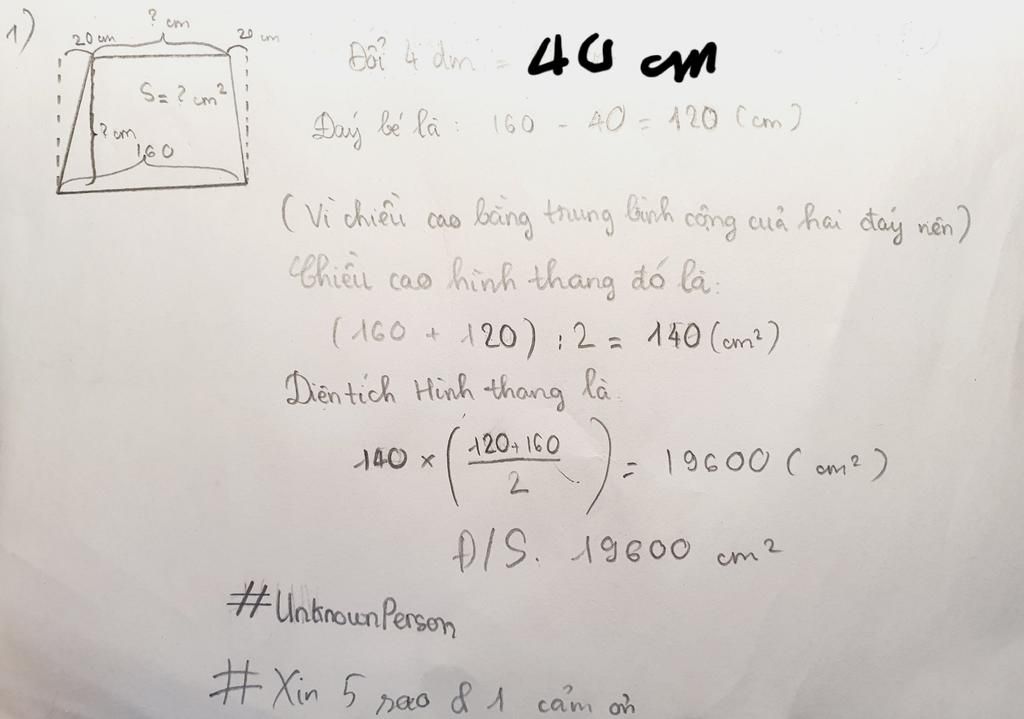 1)
? cm
20 cm
20 cm
S = ? cm²
? cm
160
Đổi 4 dm = 40 cm
Đaý bé là : 160 - 40 = 120 (cm)
(Vì chiều cao bằng trung bình cộng cuả hai đaý nên)
Chiều cao hình thang đó là:
(160 + 120) : 2 = 140 (cm²)
Diện tích Hình thang là
140 × (120+160 / 2) = 19600 (cm²)
Đ/S. 19600 cm²
#UnknownPerson
# Xin 5 sao & 1 cảm ơn